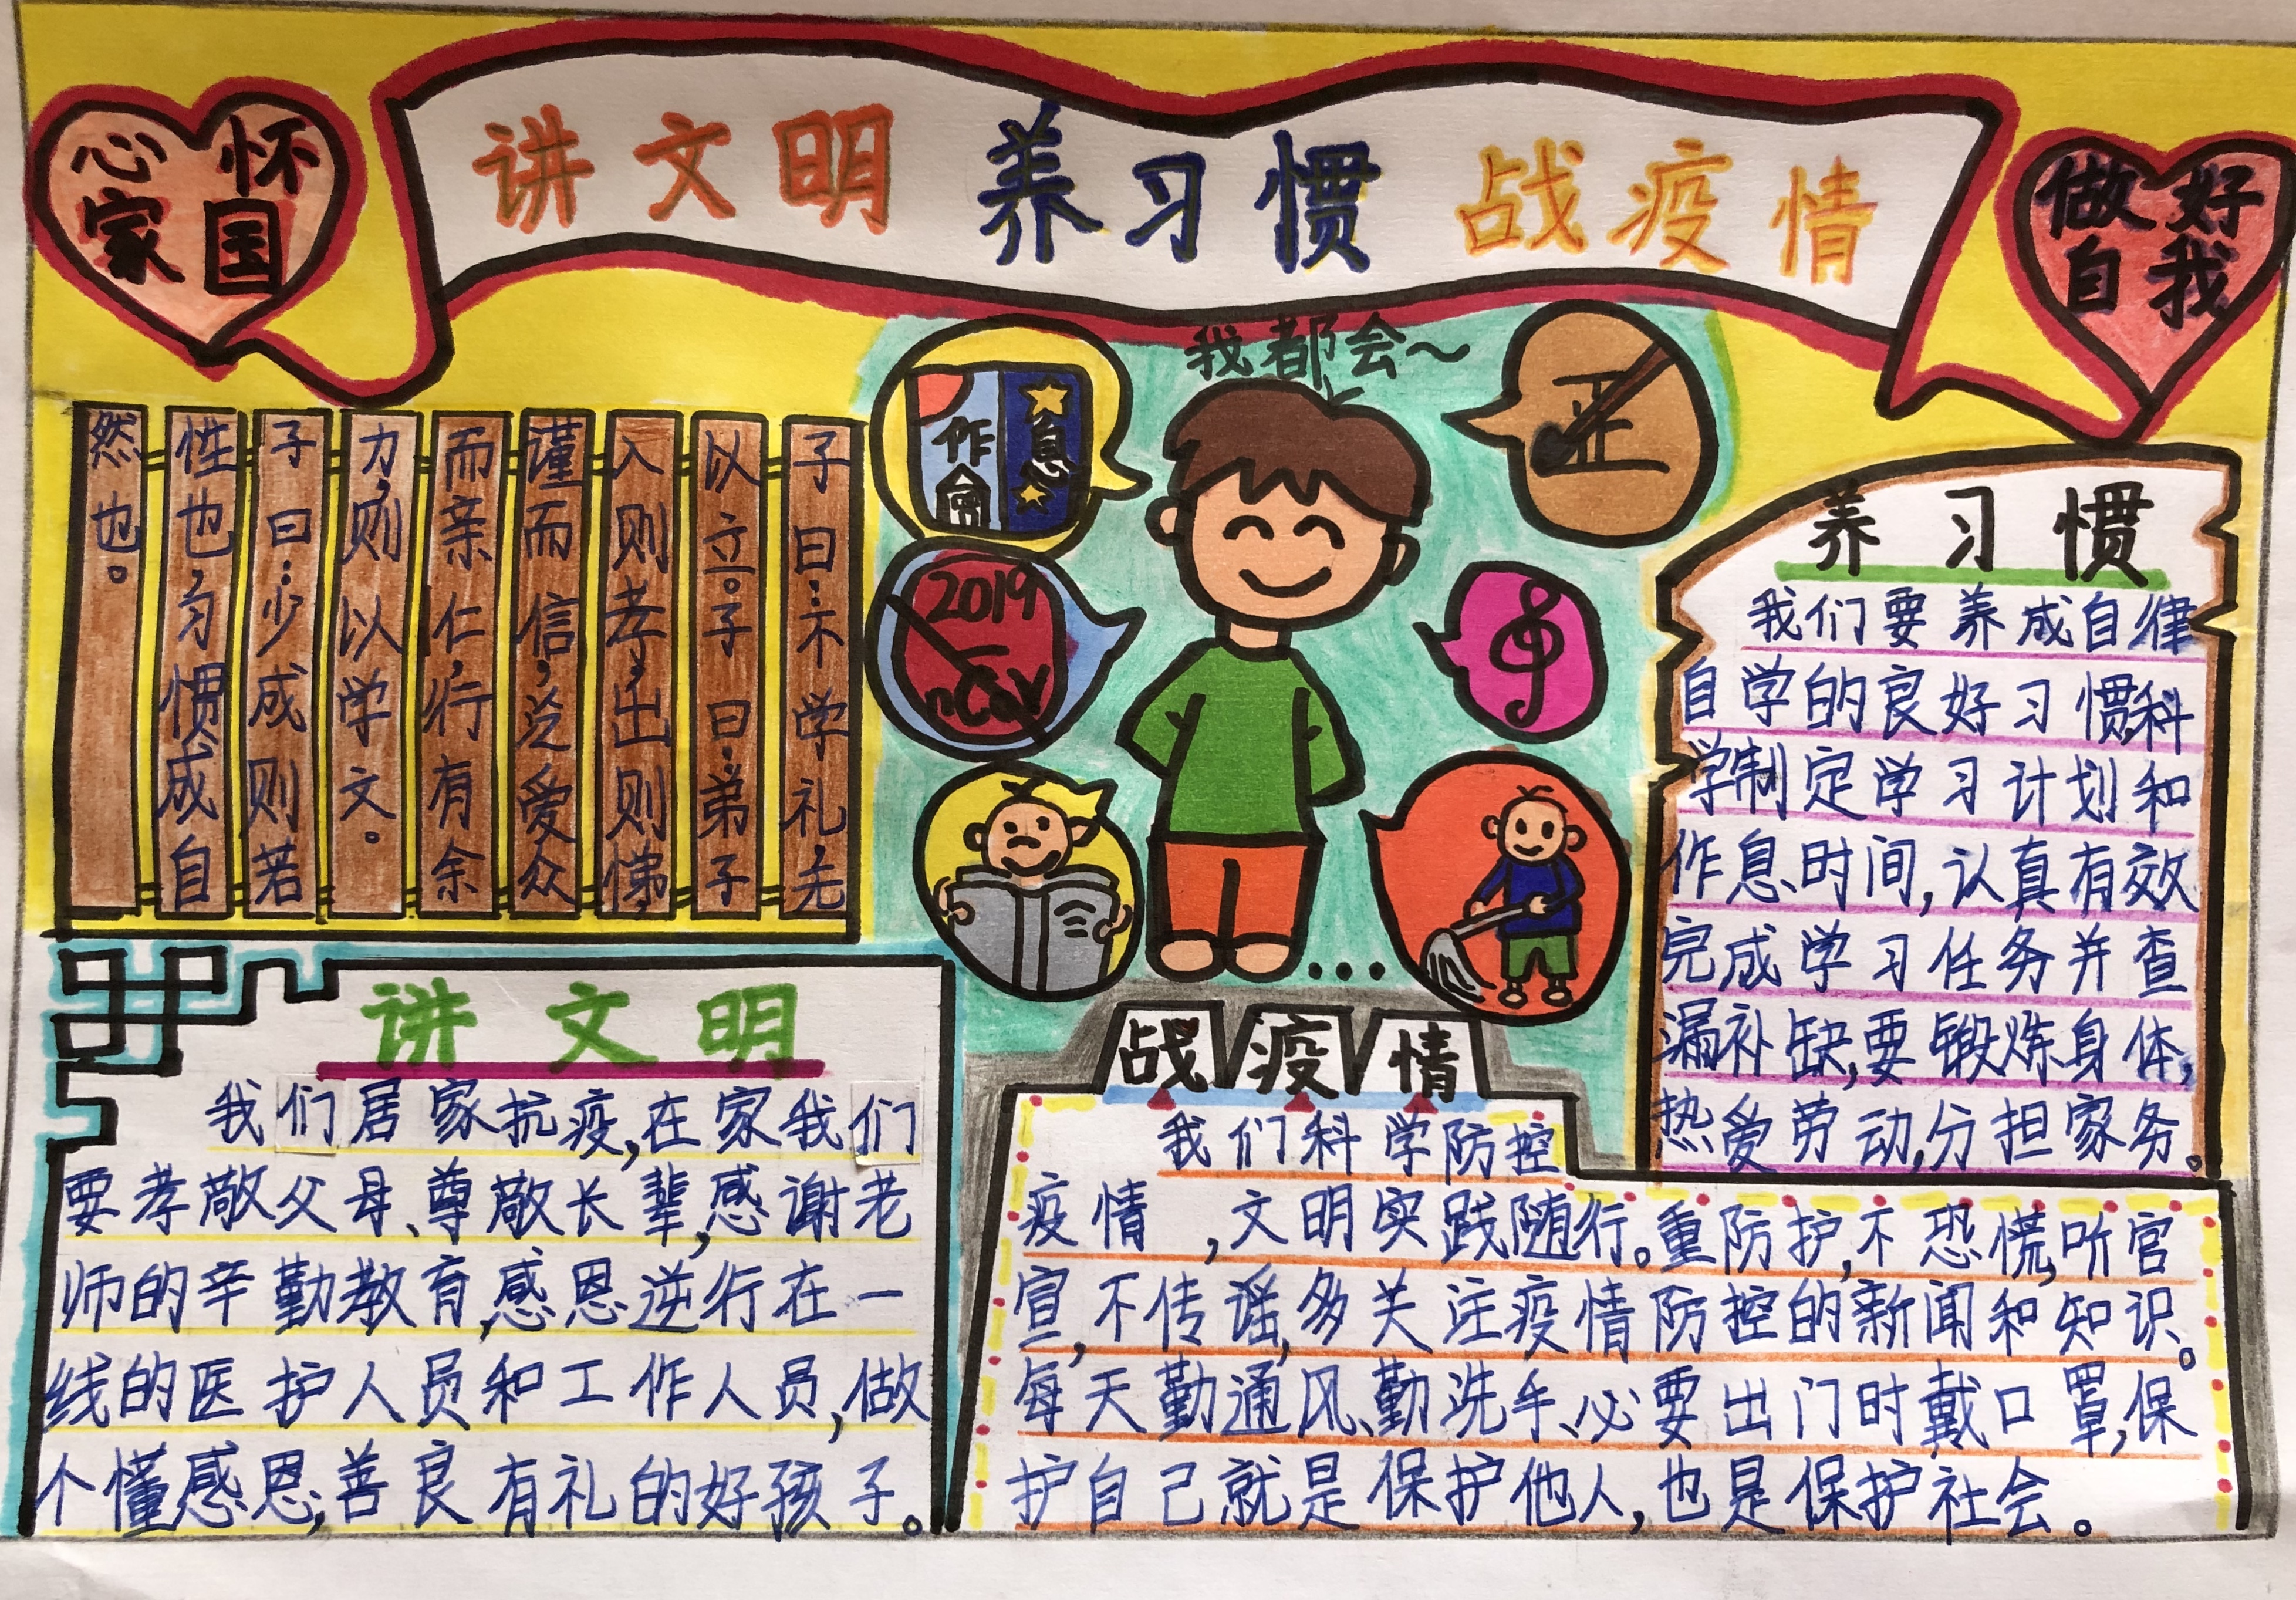 心怀
家国
讲文明 养习惯 战疫情
做好
自我
我都会～
作息
正
2019
nCoV
子曰：不学礼，无
以立。子曰：弟子
入则孝，出则悌，
谨而信，泛爱众
而亲仁，行有余
力，则以学文。
子曰：少成则若
性也，习惯成自
然也。
养习惯
我们要养成自律
自学的良好习惯，科
学制定学习计划和
作息时间，认真有效
完成学习任务并查
漏补缺，要锻炼身体，
热爱劳动，分担家务。
讲文明
我们居家抗疫，在家我们
要孝敬父母、尊敬长辈，感谢老
师的辛勤教育，感恩逆行在一
线的医护人员和工作人员，做
个懂感恩，善良有礼的好孩子。
战疫情
我们科学防控
疫情，文明实践随行。重防护，不恐慌，听官
宣，不传谣，多关注疫情防控的新闻和知识。
每天勤通风、勤洗手、必要出门时戴口罩，保
护自己就是保护他人，也是保护社会。